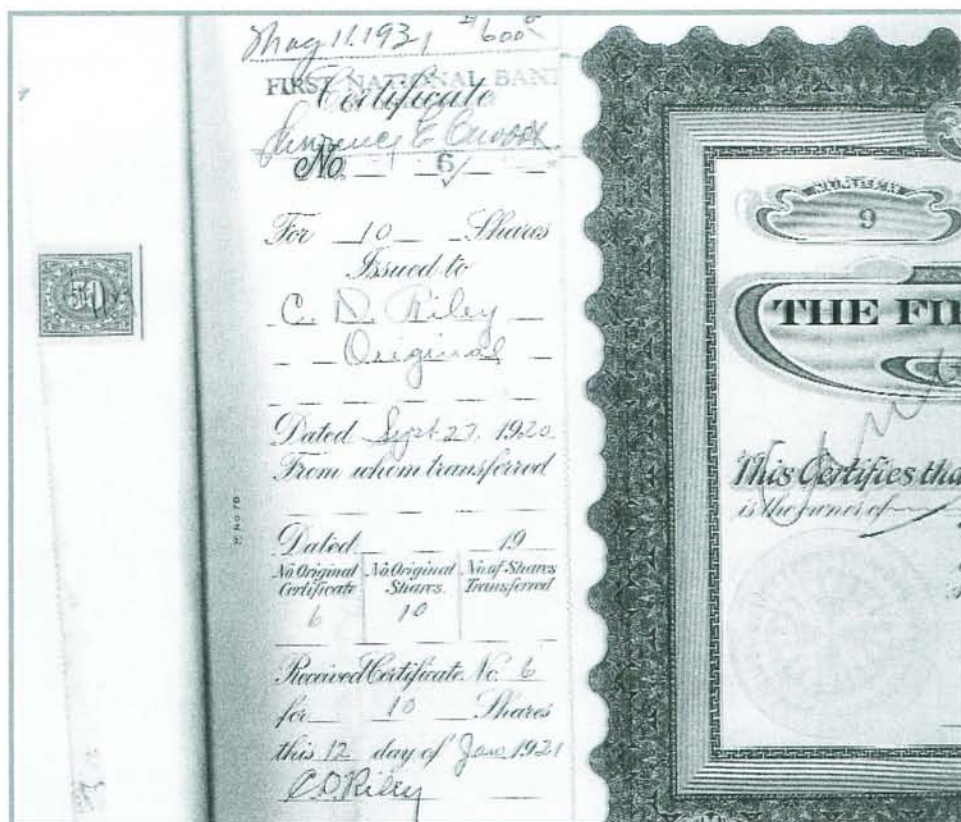 May 11. 1931 $600
FIRST NATIONAL BANK
Certificate
No. 6
For 10 Shares
Issued to
C. D. Riley
Original
Dated Sept 27, 1920.
From whom transferred
Dated 19
No. Original Certificate No. Original Shares. No. of Shares Transferred
6 10
Received Certificate No. 6
for 10 Shares
this 12 day of Jan 1921
C. D. Riley
50
NUMBER
9
THE FI
This Certifies tha
is the owner of